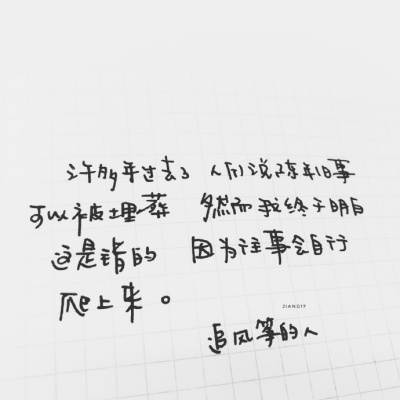 许多年过去了 人们说陈年旧事
可以被埋葬 然而我终于明白
这是错的 因为往事会自行
爬上来。
JIANGYF
追风筝的人